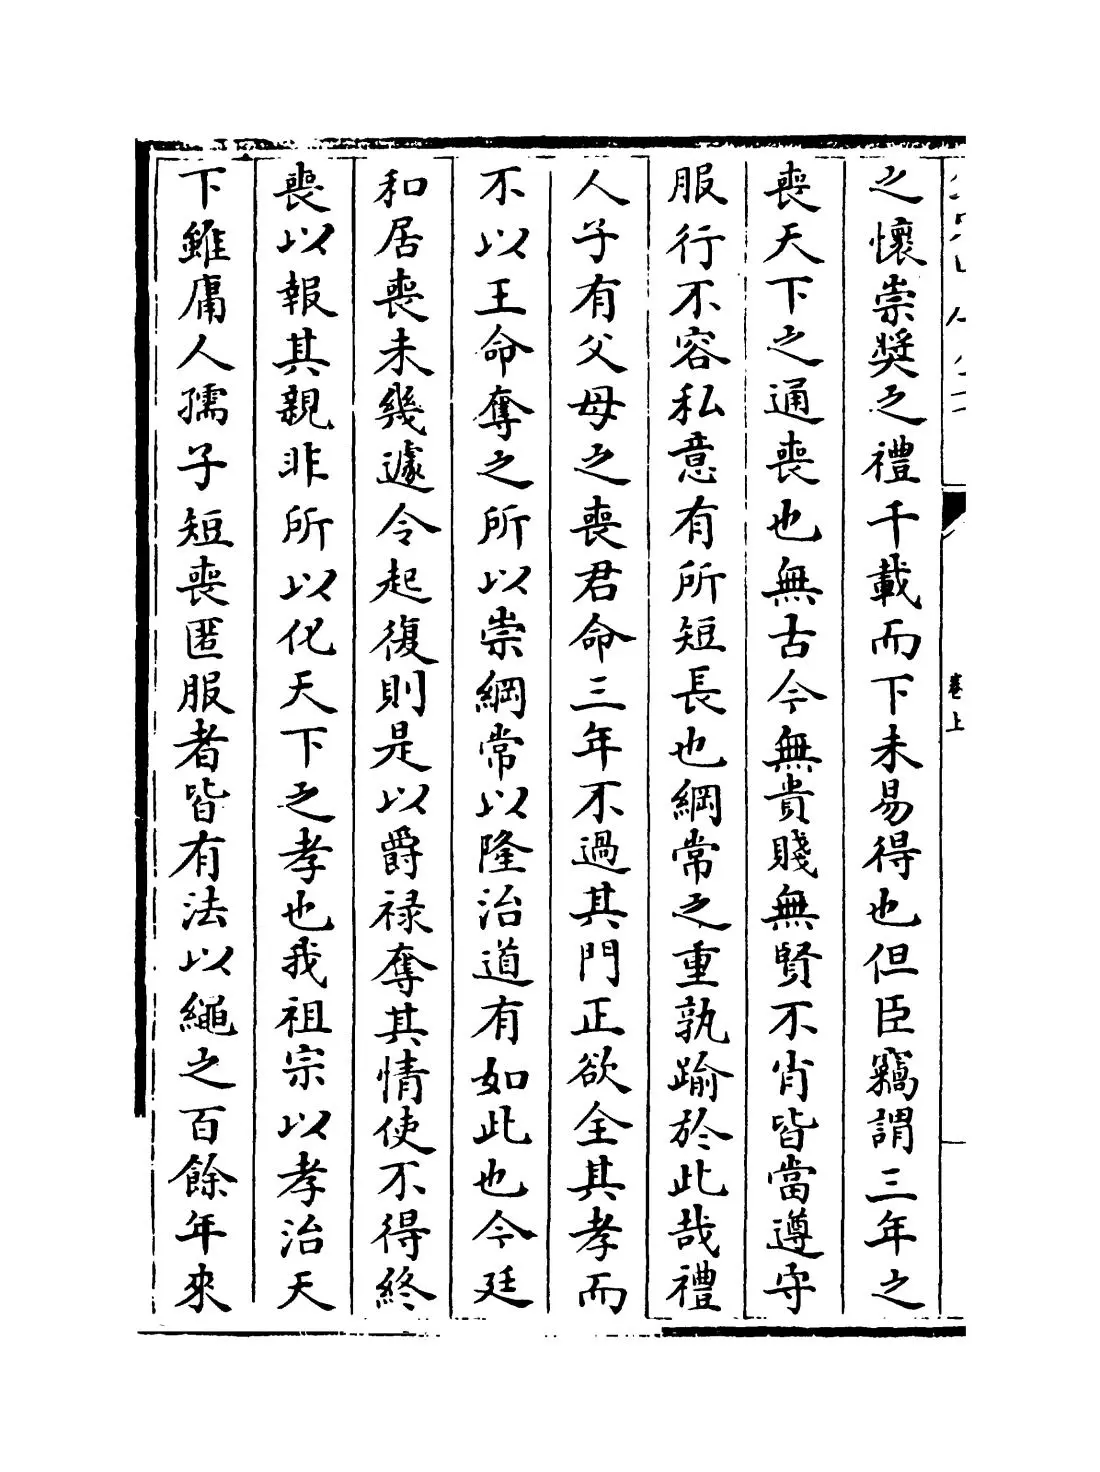 之懷崇奬之禮千載而下未易得也但臣竊謂三年之
喪天下之通喪也無古今無貴賤無賢不肖皆當遵守
服行不容私意有所短長也綱常之重孰踰於此哉禮
人子有父母之喪君命三年不過其門正欲全其孝而
不以王命奪之所以崇綱常以隆治道有如此也今廷
和居喪未幾遽令起復則是以爵祿奪其情使不得終
喪以報其親非所以化天下之孝也我祖宗以孝治天
下雖庸人孺子短喪匿服者皆有法以繩之百餘年來
卷上